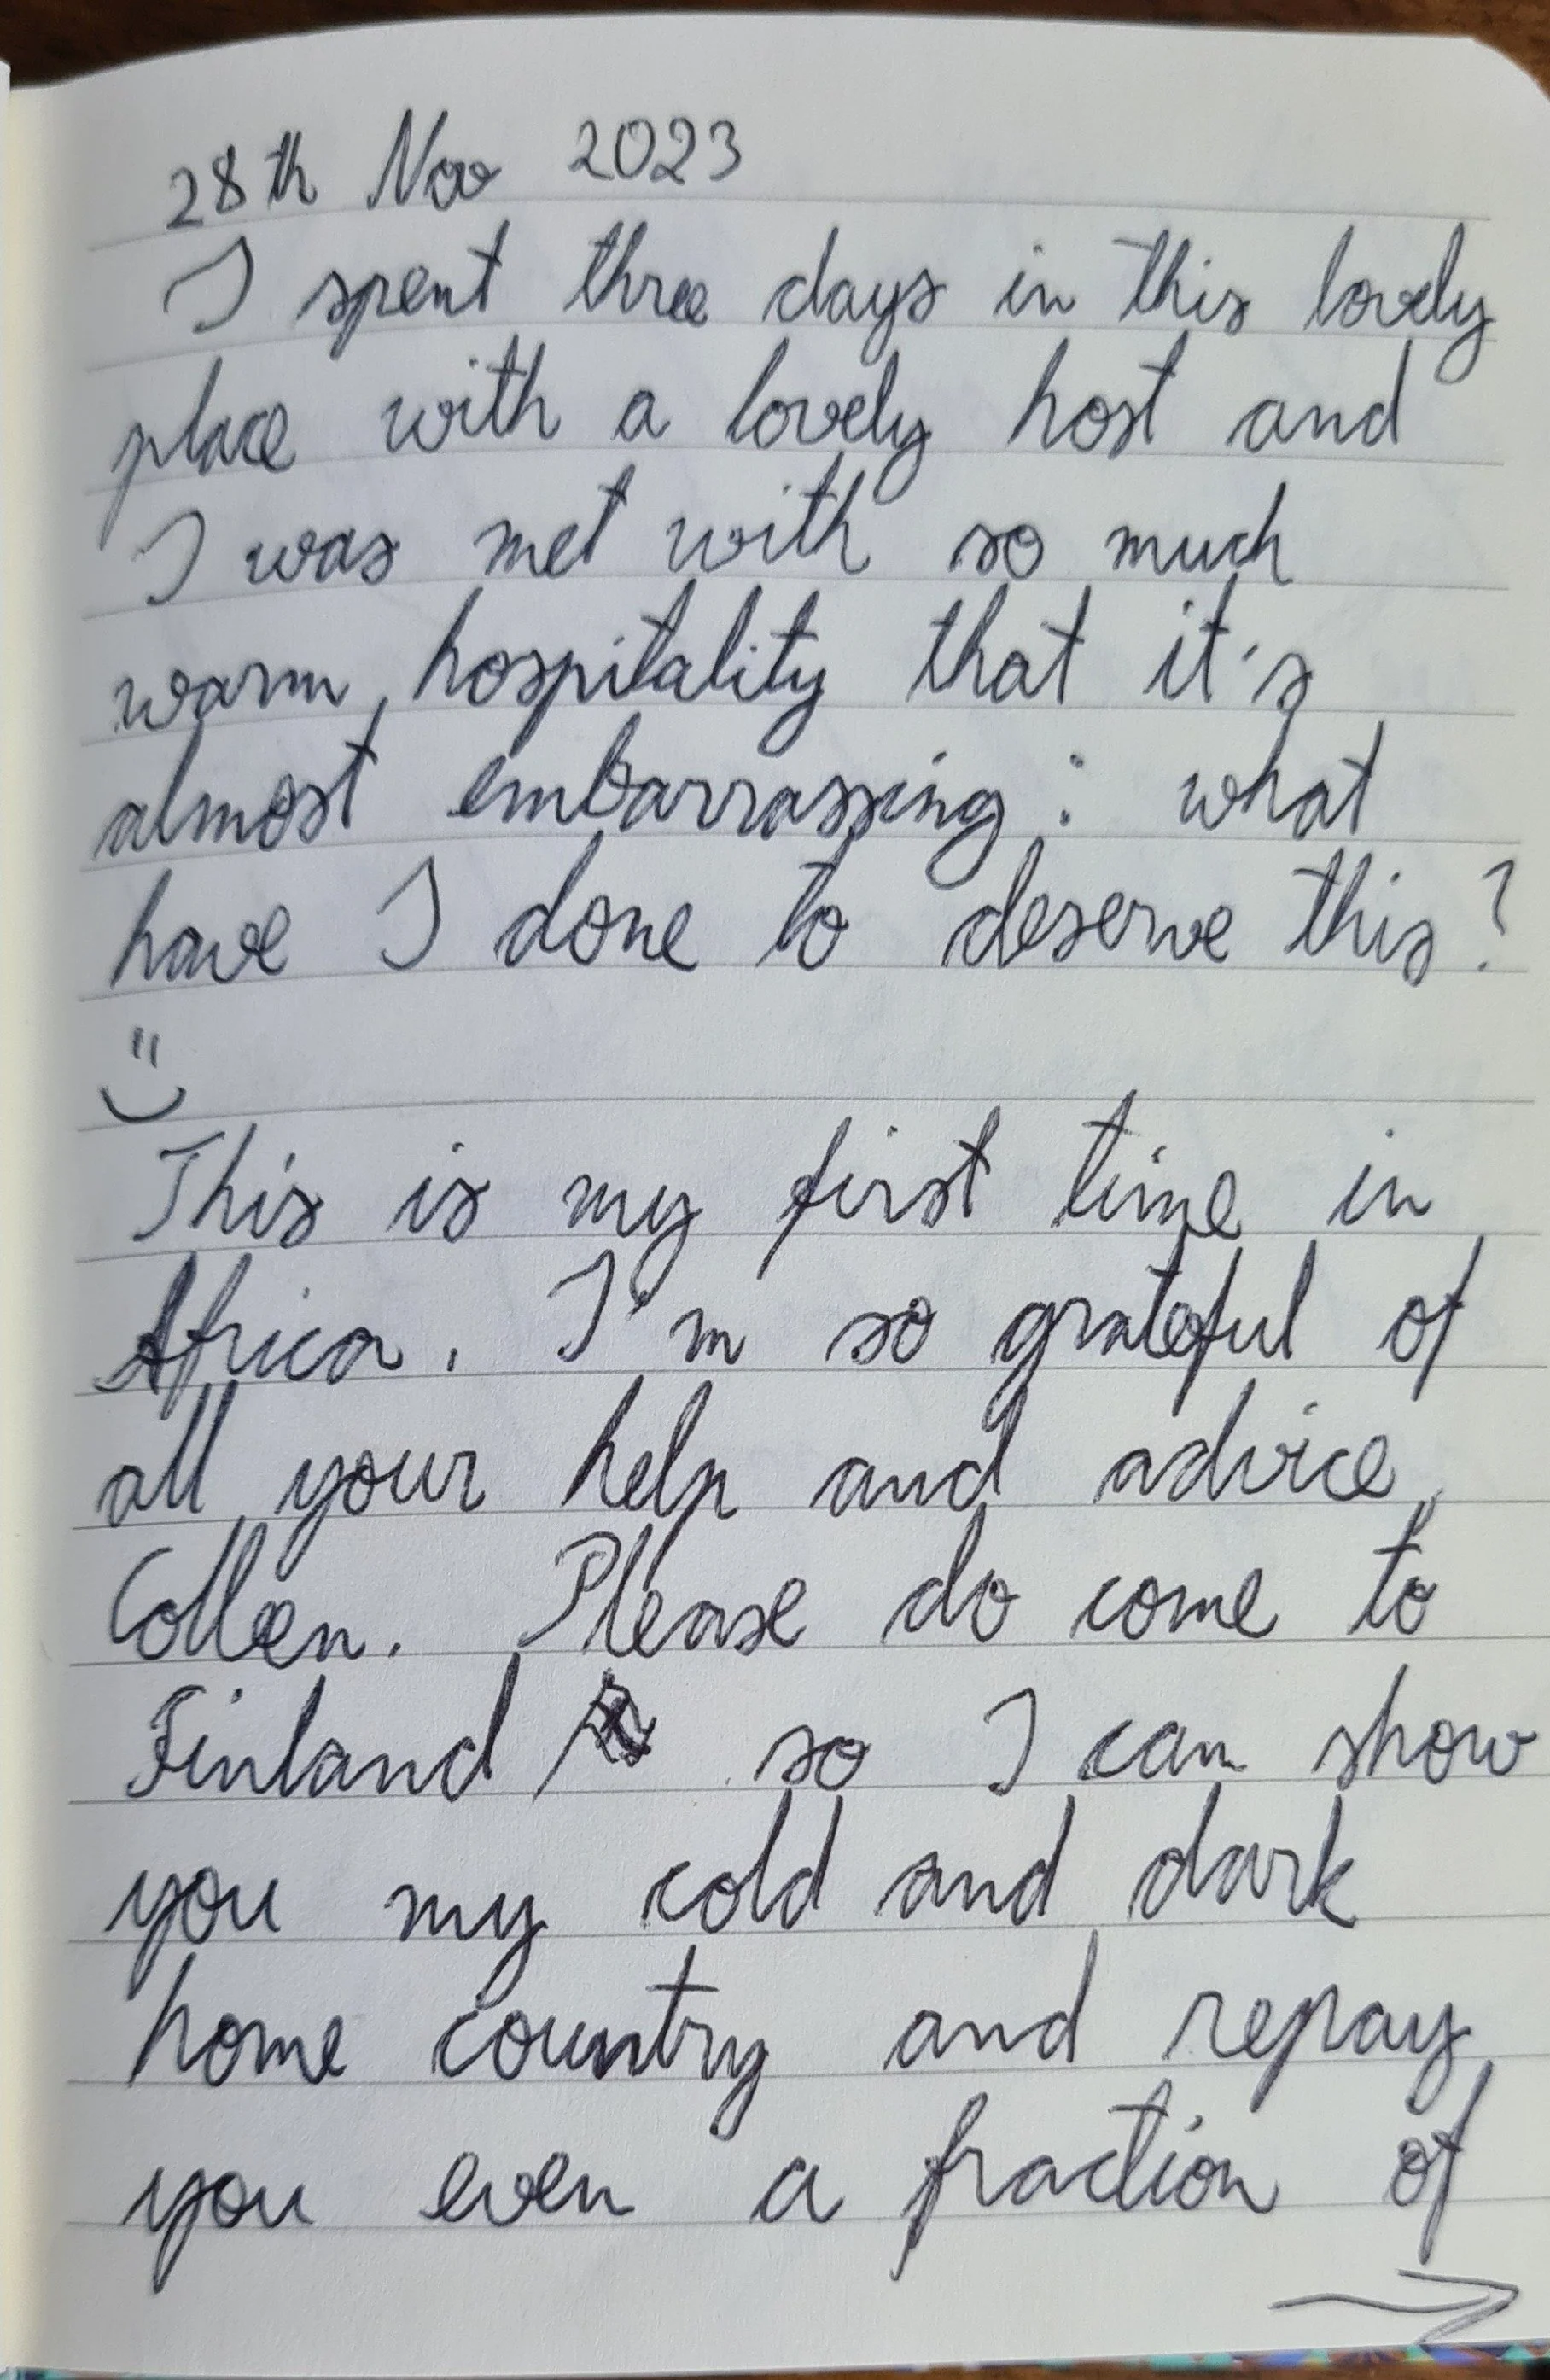 28th Nov 2023
I spent three days in this lovely
place with a lovely host and
I was met with so much
warm hospitality that it's
almost embarrassing: what
have I done to deserve this?
:)
This is my first time in
Africa. I'm so grateful of
all your help and advice,
Colleen. Please do come to
Finland so I can show
you my cold and dark
home country and repay
you even a fraction of
→